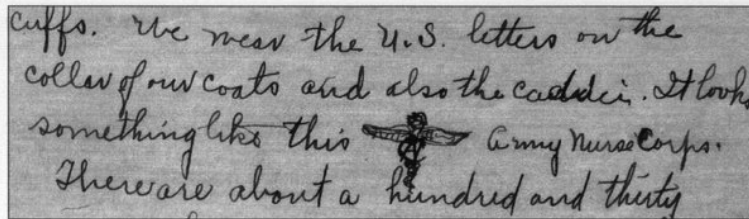 cuffs. We wear the U.S. letters on the
collar of our coats and also the caddci. It looks
something like this Army Nurse Corps.
There are about a hundred and thirty